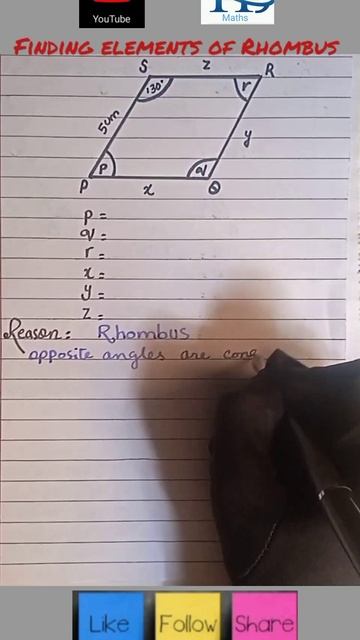 YouTube
Maths
FINDING ELEMENTS OF RHOMBUS
S z R
130° r
5cm y
P q
P x Q
p =
q =
r =
x =
y =
z =
Reason: Rhombus
opposite angles are cong
Like Follow Share